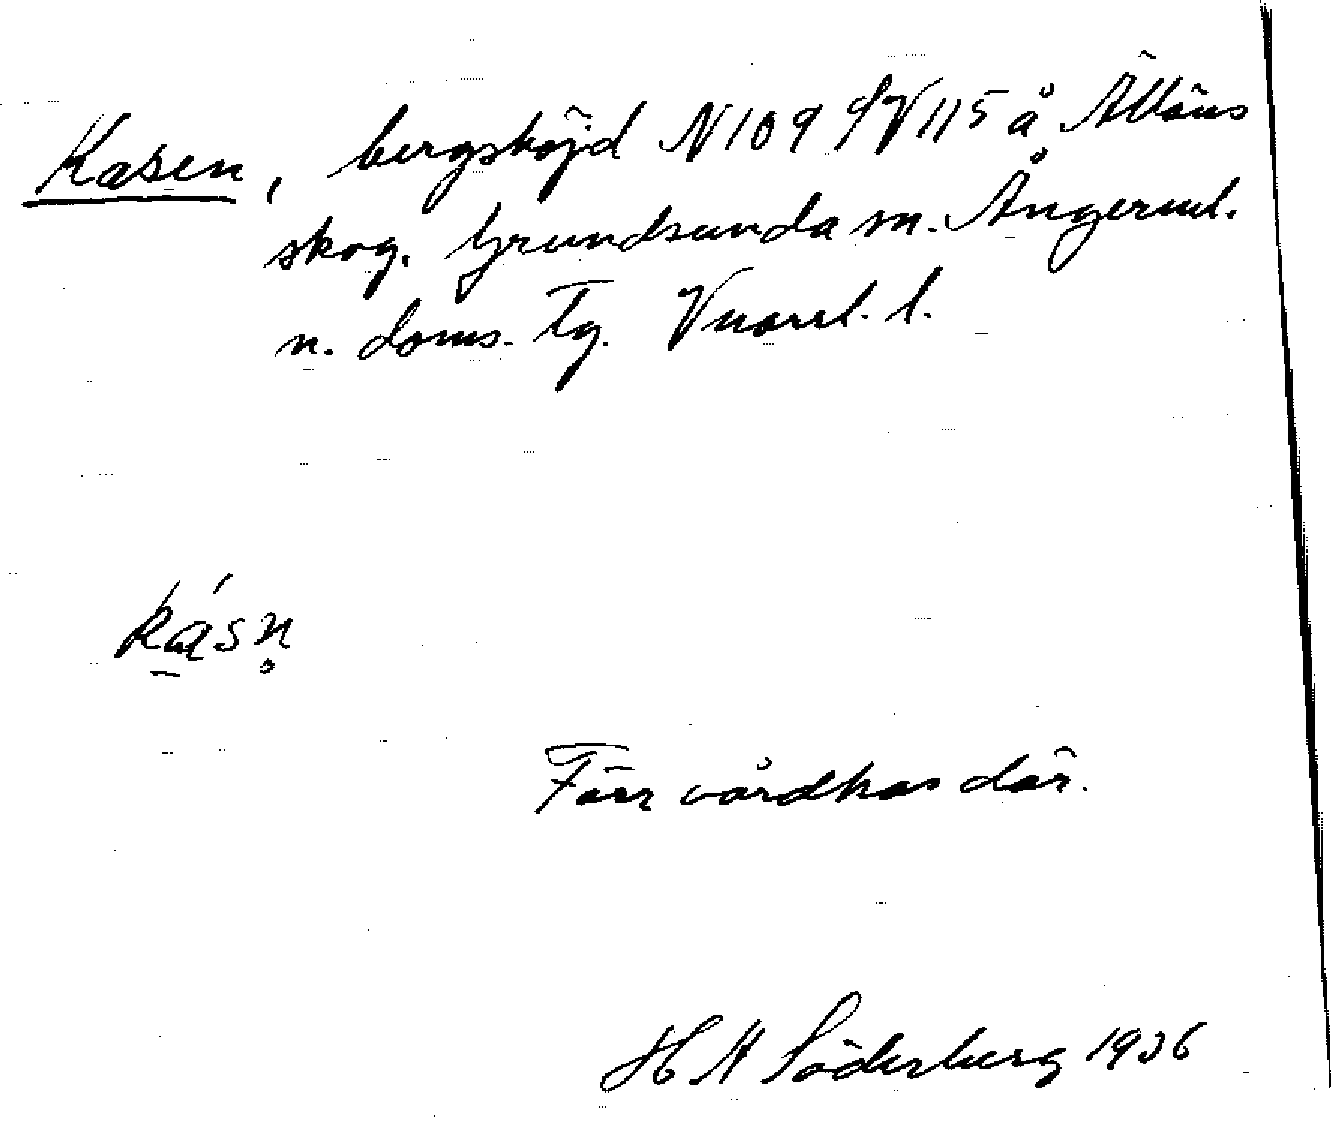 Kasen, bergshöjd N109 SV115 å Ällöns
skog. Grundsunda sn. Ångerml.
n. doms. Tg. Vnorrl. l.
kásn̥
Förr vårdkas där.
H A Söderberg 1936